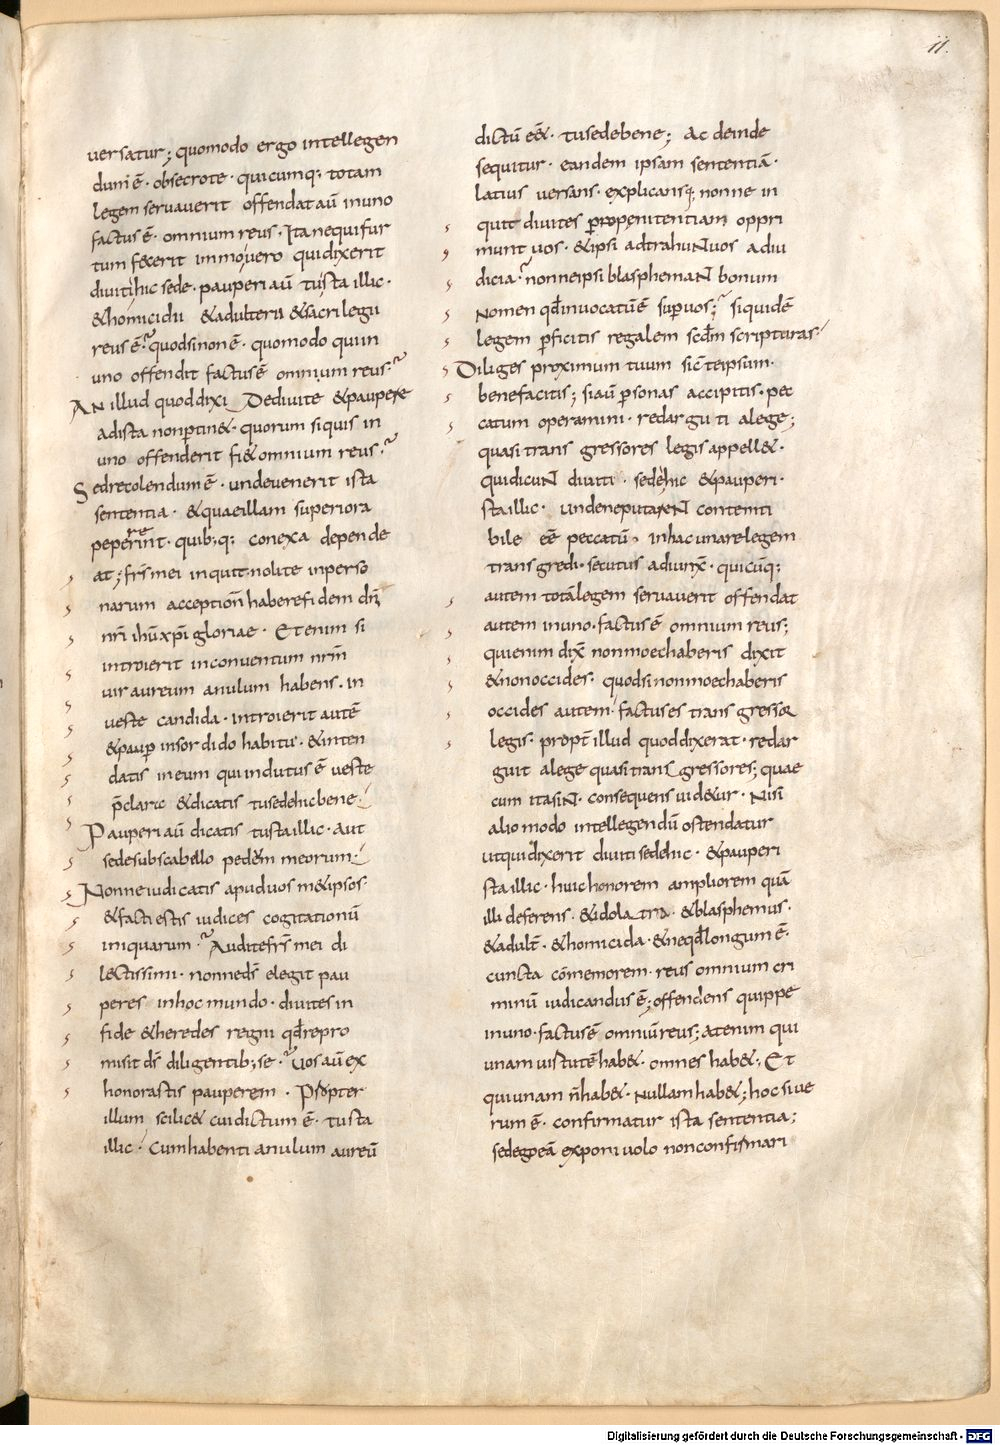 11.
uersatur; quomodo ergo intellegen
dum ē· obsecro te· quicumq; totam
legem seruauerit offendat aū in uno
factus ē· omnium reus· Ita ne qui fur
tum fecerit immo uero qui dixerit
diuiti hic sede· pauperi aū tu sta illic·
& homicidii & adulterii & sacrilegii
reus ē· quod si non ē· quomodo qui in
uno offendit factus ē omnium reus·
An illud quod dixi De diuite & paupere
ad ista non ꝑtin&· quorum si quis in
uno offenderit fi& omnium reus·
Sed recolendum ē· unde uenerit ista
sententia· & quae illam superiora
pepererint· quib;q; conexa depende
at; frs̄ mei inquit· nolite in perso
narum acceptioñ habere fidem dn̄i
nr̄i ihū xp̄i gloriae· Et enim si
introierit in conuentum nrm̄
uir aureum anulum habens· in
ueste candida· introierit autē
& paup̄ in sordido habitu· & inten
datis in eum qui indutus ē ueste
p̄claric & dicatis tu sede hic bene·
Pauperi aū dicatis tu sta illic· Aut
sede sub scabello pedem meorum·
Nonne iudicatis apud uos m& ipsos·
& facti estis iudices cogitationū
iniquarum· Audite frs̄ mei di
lectissimi· nonne ds̄ elegit pau
peres in hoc mundo· diuites in
fide & heredes regni qd̄ repro
misit ds̄ diligentib; se· Uos aū ex
honorastis pauperem· Propter
illum scilic& cui dictum ē· tu sta
illic· Cum habenti anulum aureū
dictū eē&· tu sede bene; Ac deinde
sequitur· eandem ipsam sententiā·
latius uersans· explicansq; nonne in
quit diuites ꝑ propenitentiam oppri
munt uos· & ipsi adtrahunt uos ad iu
dicia· nonne ipsi blasphemant bonum
Nomen qd̄ inuocatū ē suꝑ uos; si quidē
legem ꝑficitis regalem scdm̄ scripturas
Diliges proximum tuum sic̄ te ipsum·
bene facitis; si aū ꝑsonas accipitis· pec
catum operamini· redarguti a lege;
quasi transgressores legis appell&·
qui dicunt diuiti· sede hic & pauperi·
sta illic· unde ne putarent contemti
bile eē peccatū· in hac una re legem
transgredi· secutus adiunx̄· quicūq;
autem totā legem seruauerit offendat
autem in uno· factus ē omnium reus;
qui enim dix̄ non moechaberis dixit
& non occides· quod si non moechaberis
occides autem· factus es transgressor
legis· propt̄ illud quod dixerat· redar
guit a lege quasi transgressores; quae
cum ita sint· consequens uid&ur· Nisi
alio modo intellegendū ostendatur
ut qui dixerit diuiti sede hic· & pauperi
sta illic· huic honorem ampliorem quā
illi deferens· & idolatra· & blasphemus·
& adult̄· & homicida· & ne qd̄ longum ē·
cuncta cōmemorem· reus omnium cri
minū iudicandus ē; offendens quippe
in uno· factus ē omniū reus; at enim qui
unam uirtutē hab&· omnes hab&· Et
qui unam n̄ hab&· nullam hab&; hoc si ue
rum ē· confirmatur ista sententia;
sed ego eā exponi uolo non confirmari
Digitalisierung gefördert durch die Deutsche Forschungsgemeinschaft - DFG